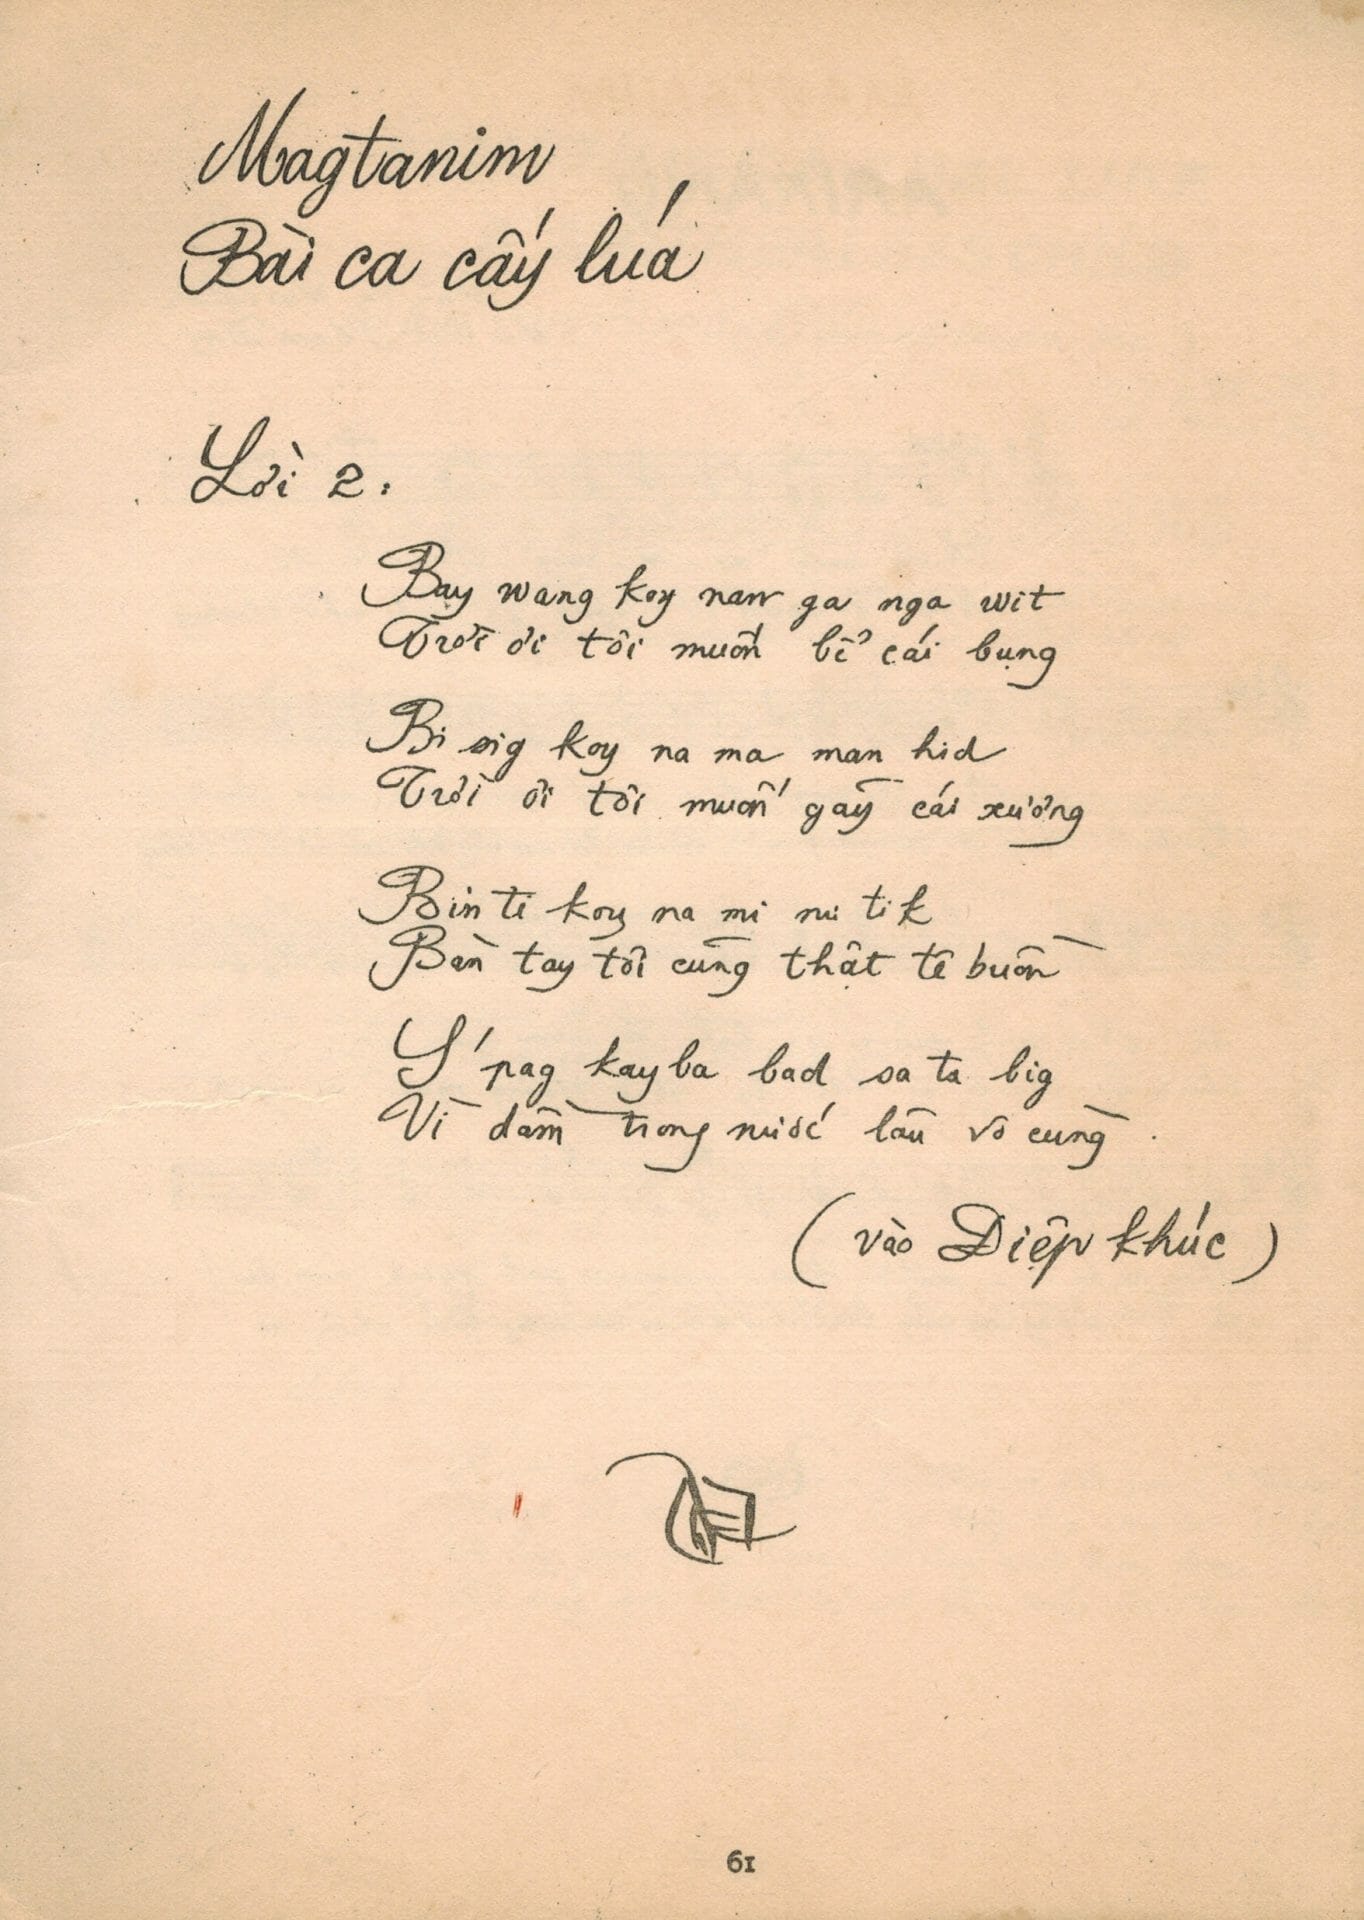 Magtanim
Bài ca cấy lúa
Lời 2:
Bay wang koy naw ga nga wit
Trời ơi tôi muốn bể cái bụng
Bi sig koy na ma man hid
Trời ơi tôi muốn gãy cái xương
Bin ti koy na mi ni tik
Bàn tay tôi cũng thật tê buồn
Y' pag kay ba bad sa ta big
Vì dầm trong nước lâu vô cùng.
(vào Điệp khúc)
61